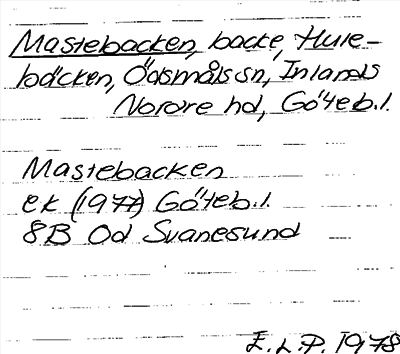 Mastebacken, backe, Hule-
bäcken, Ödsmåls sn, Inlands
Nordre hd, Göteb.l.
Mastebacken
ek (1977) Göteb.l.
8B 0d Svanesund
E.L.P. 1978